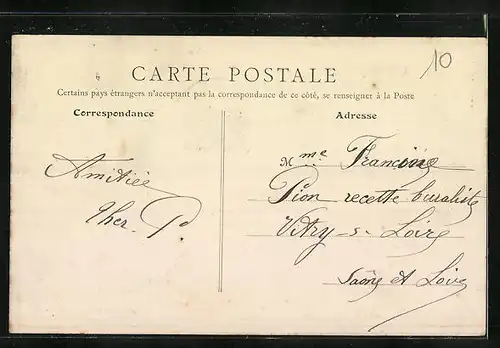 10
CARTE POSTALE
Certains pays étrangers n'acceptant pas la correspondance de ce côté, se renseigner à la Poste
Correspondance
Adresse
Amitiée
P.
Mme Francine
Pion recette buraliste
Vitry-s-Loire
Saône et Loire